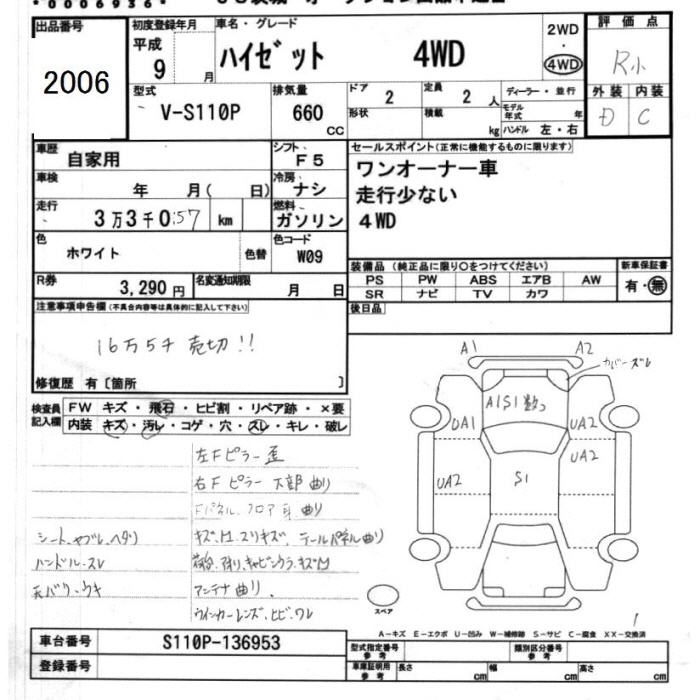 0006936
出品番号 初度登録年月 車名・グレード 2WD 評価点
2006 平成 9 月 ハイゼット 4WD ・ 4WD R小
型式 排気量 ドア 2 定員 2 人 ディーラー・並行 外装 内装
V-S110P 660 cc 形状 積載 kg モデル年式 年 D C
ハンドル 左・右
車歴 自家用 シフト F5 セールスポイント(正常に機能するものに限ります)
車検 年 月( 日) 冷房 ナシ ワンオーナー車
走行 3万3千0:57 km 燃料 ガソリン 走行少ない
4WD
色 ホワイト 色替 色コード W09
装備品 (純正品に限り○をつけてください) 新車保証書
R券 3,290円 名変通知期限 月 日 PS PW ABS エアB AW 有・無
SR ナビ TV カワ
注意事項申告欄(不具合内容等は具体的に記入して下さい) 後日品
16万5千 売切!!
修復歴 有〔箇所 〕
検査員記入欄 FW キズ・飛石・ヒビ割・リペア跡・×要
内装 キズ・汚レ・コゲ・穴・スレ・キレ・破レ
A1 A2 カバーズレ
A1S1数コ
UA1 UA2
UA2 S1 UA2
左Fピラー歪
右Fピラー下部曲り
Fパネル、フロア 曲り
シート、ヤブレ、ヘタリ キズ、凹、スリキズ、テールパネル曲り
ハンドル、スレ キャビンウラ、キズ凹
天バリ、ウキ アンテナ曲り、
ウインカーレンズ、ヒビ、ワレ
スペア
A-キズ E-エクボ U-凹み W-補修跡 S-サビ C-腐食 XX-交換済
車台番号 S110P-136953 型式指定番号 参考 類別区分番号 参考
登録番号 車庫証明用 参考 長さ cm 幅 cm 高さ cm